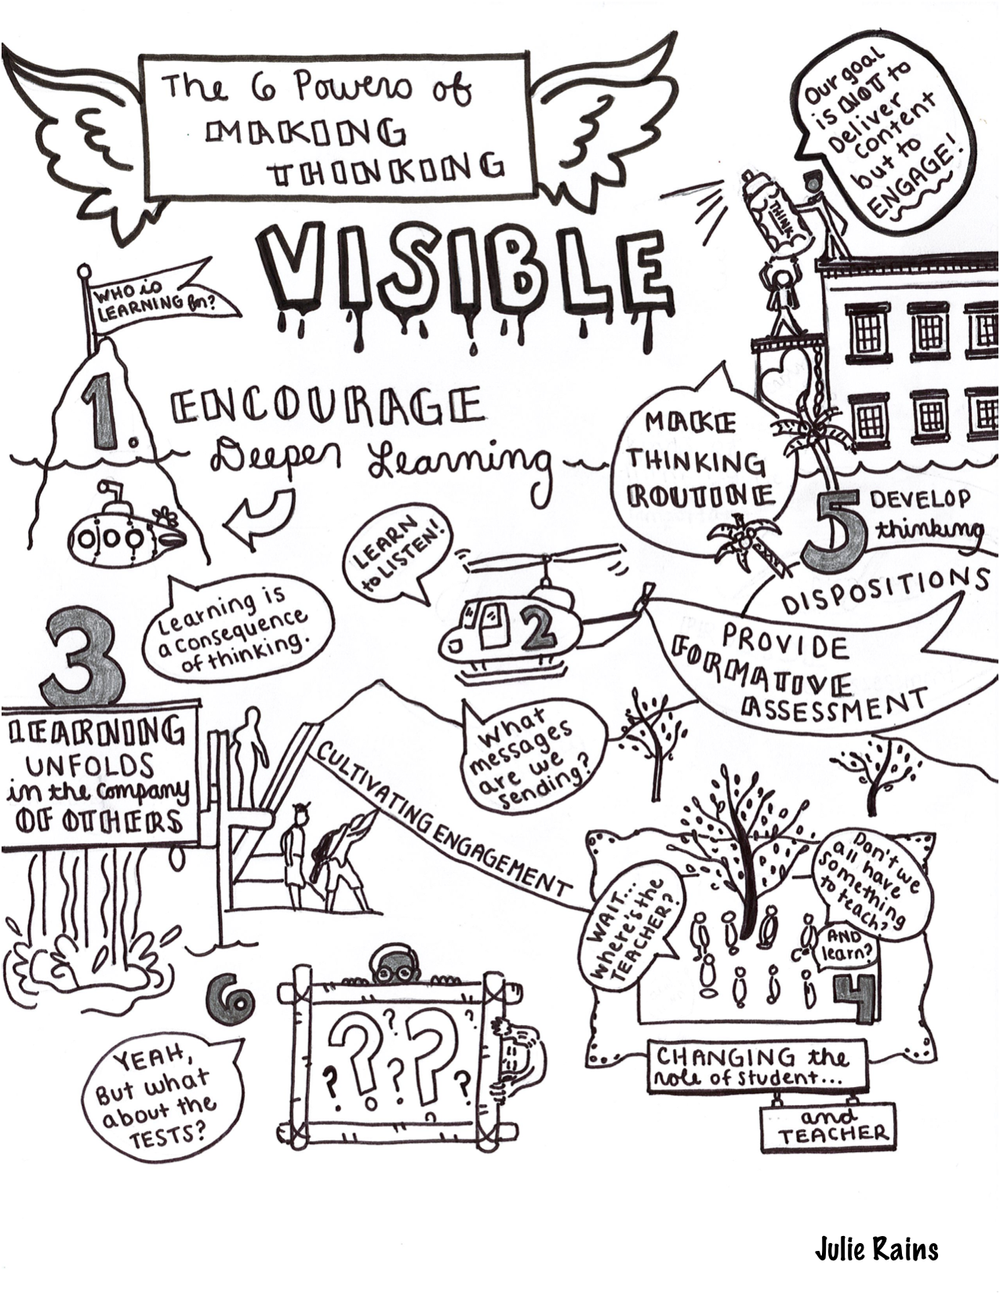 The 6 Powers of
MAKING
THINKING
VISIBLE
Our goal
is NOT to
Deliver
content
but to
ENGAGE!
THINK
WHO is
LEARNING for?
1.
ENCOURAGE
Deeper Learning
MAKE
THINKING
ROUTINE
5
DEVELOP
thinking
DISPOSITIONS
LEARN
to LISTEN!
2
PROVIDE
FORMATIVE
ASSESSMENT
Learning is
a consequence
of thinking.
3
LEARNING
UNFOLDS
in the company
OF OTHERS
CULTIVATING ENGAGEMENT
What
messages
are we
sending?
WAIT...
Where's the
TEACHER?
Don't we
all have
something
to teach?
AND
learn?
4
CHANGING the
role of student...
and
TEACHER
6
YEAH,
But what
about the
TESTS?
? ? ? ? ? ?
Julie Rains